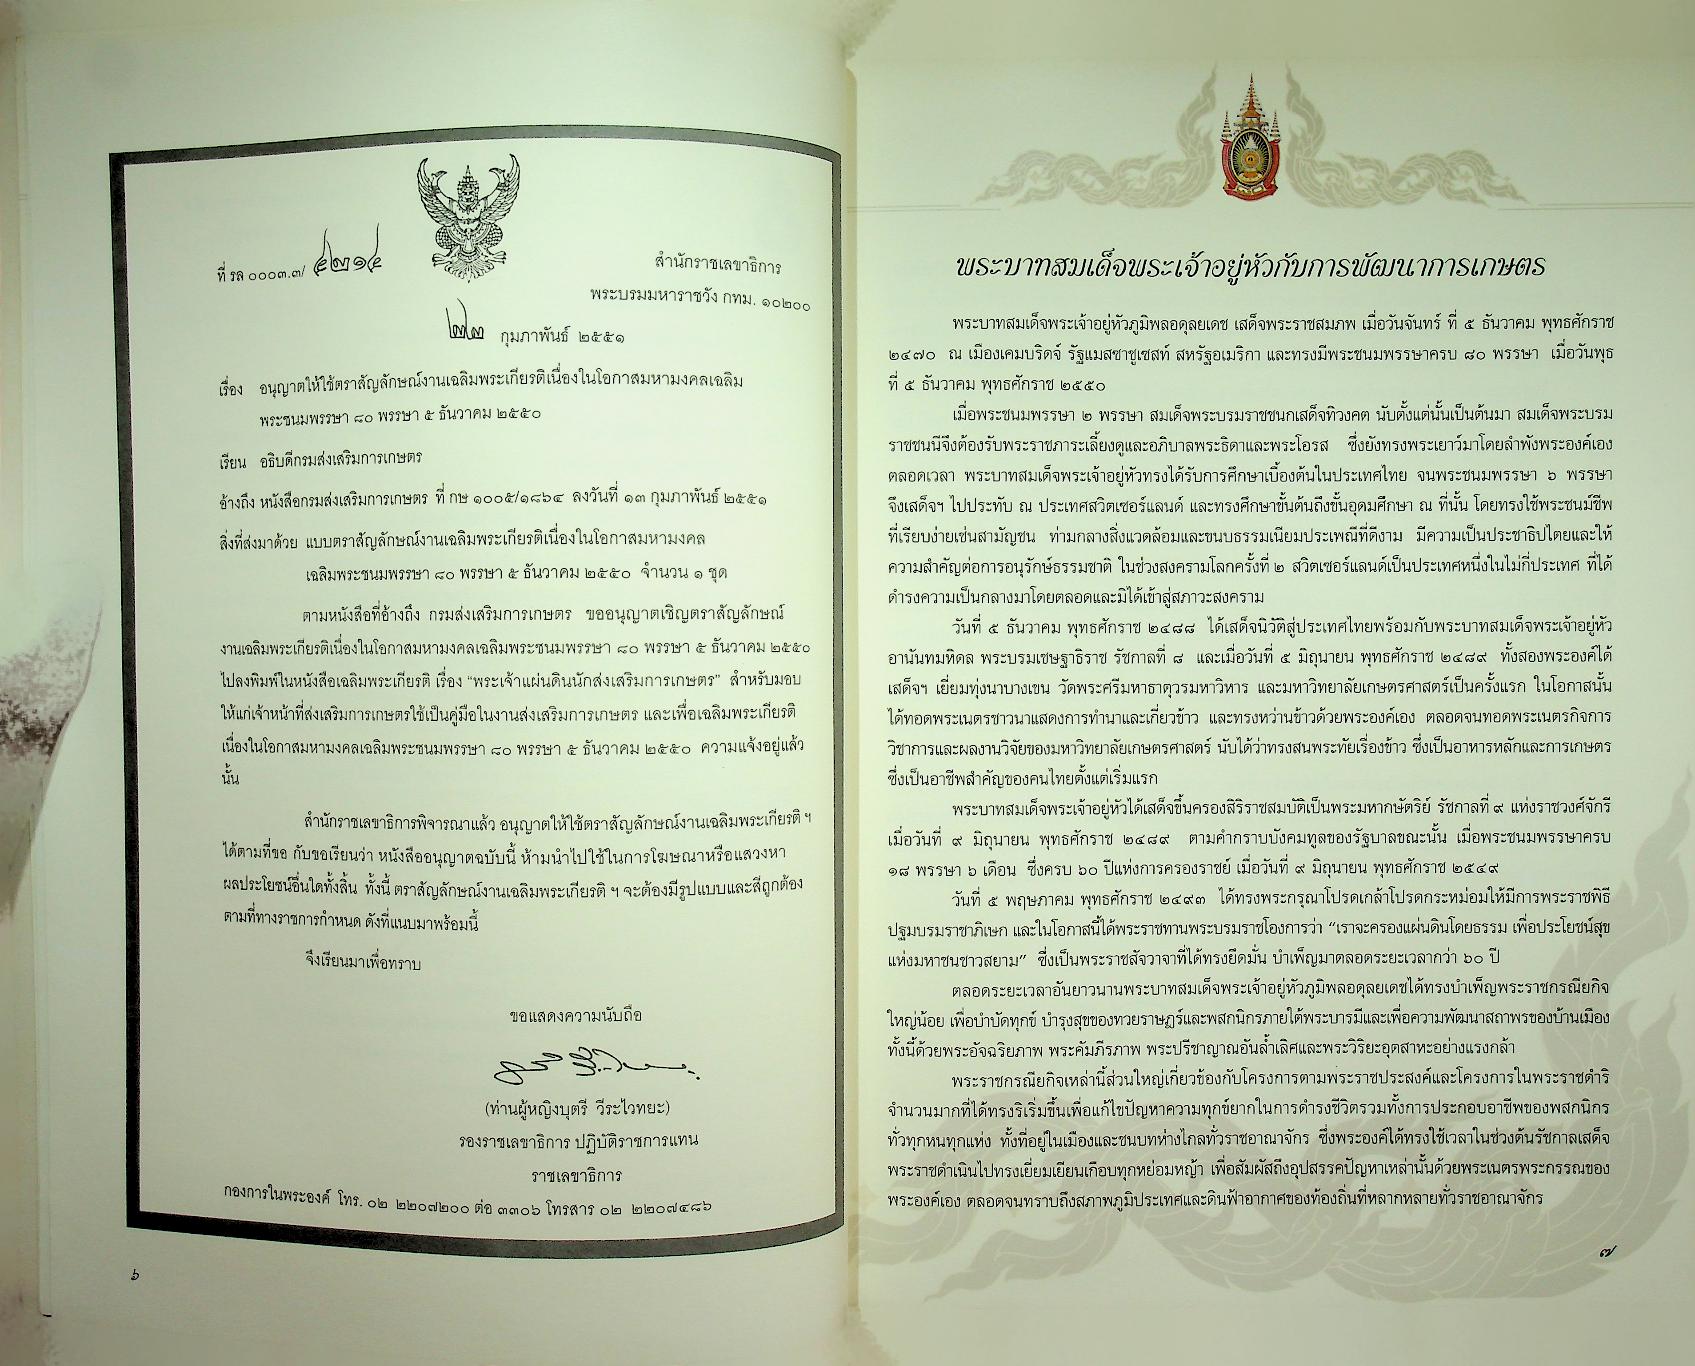 ที่ รล ๐๐๐๓.๓/ ๔๒๑๔
สำนักราชเลขาธิการ
พระบรมมหาราชวัง กทม. ๑๐๒๐๐
๒๒ กุมภาพันธ์ ๒๕๕๑
เรื่อง อนุญาตให้ใช้ตราสัญลักษณ์งานเฉลิมพระเกียรติเนื่องในโอกาสมหามงคลเฉลิม
พระชนมพรรษา ๘๐ พรรษา ๕ ธันวาคม ๒๕๕๐
เรียน อธิบดีกรมส่งเสริมการเกษตร
อ้างถึง หนังสือกรมส่งเสริมการเกษตร ที่ กษ ๑๐๐๕/๑๘๖๔ ลงวันที่ ๑๓ กุมภาพันธ์ ๒๕๕๑
สิ่งที่ส่งมาด้วย แบบตราสัญลักษณ์งานเฉลิมพระเกียรติเนื่องในโอกาสมหามงคล
เฉลิมพระชนมพรรษา ๘๐ พรรษา ๕ ธันวาคม ๒๕๕๐ จำนวน ๑ ชุด
ตามหนังสือที่อ้างถึง กรมส่งเสริมการเกษตร ขออนุญาตเชิญตราสัญลักษณ์
งานเฉลิมพระเกียรติเนื่องในโอกาสมหามงคลเฉลิมพระชนมพรรษา ๘๐ พรรษา ๕ ธันวาคม ๒๕๕๐
ไปลงพิมพ์ในหนังสือเฉลิมพระเกียรติ เรื่อง “พระเจ้าแผ่นดินนักส่งเสริมการเกษตร” สำหรับมอบ
ให้แก่เจ้าหน้าที่ส่งเสริมการเกษตรใช้เป็นคู่มือในงานส่งเสริมการเกษตร และเพื่อเฉลิมพระเกียรติ
เนื่องในโอกาสมหามงคลเฉลิมพระชนมพรรษา ๘๐ พรรษา ๕ ธันวาคม ๒๕๕๐ ความแจ้งอยู่แล้ว
นั้น
สำนักราชเลขาธิการพิจารณาแล้ว อนุญาตให้ใช้ตราสัญลักษณ์งานเฉลิมพระเกียรติ ฯ
ได้ตามที่ขอ กับขอเรียนว่า หนังสืออนุญาตฉบับนี้ ห้ามนำไปใช้ในการโฆษณาหรือแสวงหา
ผลประโยชน์อื่นใดทั้งสิ้น ทั้งนี้ ตราสัญลักษณ์งานเฉลิมพระเกียรติ ฯ จะต้องมีรูปแบบและสีถูกต้อง
ตามที่ทางราชการกำหนด ดังที่แนบมาพร้อมนี้
จึงเรียนมาเพื่อทราบ
ขอแสดงความนับถือ
(ท่านผู้หญิงบุตรี วีระไวทยะ)
รองราชเลขาธิการ ปฏิบัติราชการแทน
ราชเลขาธิการ
กองการในพระองค์ โทร. ๐๒ ๒๒๐๗๒๐๐ ต่อ ๓๓๐๖ โทรสาร ๐๒ ๒๒๐๗๔๘๖
๖
พระบาทสมเด็จพระเจ้าอยู่หัวกับการพัฒนาการเกษตร
พระบาทสมเด็จพระเจ้าอยู่หัวภูมิพลอดุลยเดช เสด็จพระราชสมภพ เมื่อวันจันทร์ ที่ ๕ ธันวาคม พุทธศักราช
๒๔๗๐ ณ เมืองเคมบริดจ์ รัฐแมสซาชูเซสท์ สหรัฐอเมริกา และทรงมีพระชนมพรรษาครบ ๘๐ พรรษา เมื่อวันพุธ
ที่ ๕ ธันวาคม พุทธศักราช ๒๕๕๐
เมื่อพระชนมพรรษา ๒ พรรษา สมเด็จพระบรมราชชนกเสด็จทิวงคต นับตั้งแต่นั้นเป็นต้นมา สมเด็จพระบรม
ราชชนนีจึงต้องรับพระราชภาระเลี้ยงดูและอภิบาลพระธิดาและพระโอรส ซึ่งยังทรงพระเยาว์มาโดยลำพังพระองค์เอง
ตลอดเวลา พระบาทสมเด็จพระเจ้าอยู่หัวทรงได้รับการศึกษาเบื้องต้นในประเทศไทย จนพระชนมพรรษา ๖ พรรษา
จึงเสด็จฯ ไปประทับ ณ ประเทศสวิตเซอร์แลนด์ และทรงศึกษาขั้นต้นถึงขั้นอุดมศึกษา ณ ที่นั้น โดยทรงใช้พระชนม์ชีพ
ที่เรียบง่ายเช่นสามัญชน ท่ามกลางสิ่งแวดล้อมและขนบธรรมเนียมประเพณีที่ดีงาม มีความเป็นประชาธิปไตยและให้
ความสำคัญต่อการอนุรักษ์ธรรมชาติ ในช่วงสงครามโลกครั้งที่ ๒ สวิตเซอร์แลนด์เป็นประเทศหนึ่งในไม่กี่ประเทศ ที่ได้
ดำรงความเป็นกลางมาโดยตลอดและมิได้เข้าสู่สภาวะสงคราม
วันที่ ๕ ธันวาคม พุทธศักราช ๒๔๘๘ ได้เสด็จนิวัติสู่ประเทศไทยพร้อมกับพระบาทสมเด็จพระเจ้าอยู่หัว
อานันทมหิดล พระบรมเชษฐาธิราช รัชกาลที่ ๘ และเมื่อวันที่ ๕ มิถุนายน พุทธศักราช ๒๔๘๙ ทั้งสองพระองค์ได้
เสด็จฯ เยี่ยมทุ่งนาบางเขน วัดพระศรีมหาธาตุวรมหาวิหาร และมหาวิทยาลัยเกษตรศาสตร์เป็นครั้งแรก ในโอกาสนั้น
ได้ทอดพระเนตรชาวนาแสดงการทำนาและเกี่ยวข้าว และทรงหว่านข้าวด้วยพระองค์เอง ตลอดจนทอดพระเนตรกิจการ
วิชาการและผลงานวิจัยของมหาวิทยาลัยเกษตรศาสตร์ นับได้ว่าทรงสนพระทัยเรื่องข้าว ซึ่งเป็นอาหารหลักและการเกษตร
ซึ่งเป็นอาชีพสำคัญของคนไทยตั้งแต่เริ่มแรก
พระบาทสมเด็จพระเจ้าอยู่หัวได้เสด็จขึ้นครองสิริราชสมบัติเป็นพระมหากษัตริย์ รัชกาลที่ ๙ แห่งราชวงศ์จักรี
เมื่อวันที่ ๙ มิถุนายน พุทธศักราช ๒๔๘๙ ตามคำกราบบังคมทูลของรัฐบาลขณะนั้น เมื่อพระชนมพรรษาครบ
๑๘ พรรษา ๖ เดือน ซึ่งครบ ๖๐ ปีแห่งการครองราชย์ เมื่อวันที่ ๙ มิถุนายน พุทธศักราช ๒๕๔๙
วันที่ ๕ พฤษภาคม พุทธศักราช ๒๔๙๓ ได้ทรงพระกรุณาโปรดเกล้าโปรดกระหม่อมให้มีการพระราชพิธี
ปฐมบรมราชาภิเษก และในโอกาสนี้ได้พระราชทานพระบรมราชโองการว่า “เราจะครองแผ่นดินโดยธรรม เพื่อประโยชน์สุข
แห่งมหาชนชาวสยาม” ซึ่งเป็นพระราชสัจวาจาที่ได้ทรงยึดมั่น บำเพ็ญมาตลอดระยะเวลากว่า ๖๐ ปี
ตลอดระยะเวลาอันยาวนานพระบาทสมเด็จพระเจ้าอยู่หัวภูมิพลอดุลยเดชได้ทรงบำเพ็ญพระราชกรณียกิจ
ใหญ่น้อย เพื่อบำบัดทุกข์ บำรุงสุขของทวยราษฎร์และพสกนิกรภายใต้พระบารมีและเพื่อความพัฒนาสถาพรของบ้านเมือง
ทั้งนี้ด้วยพระอัจฉริยภาพ พระคัมภีรภาพ พระปรีชาญาณอันล้ำเลิศและพระวิริยะอุตสาหะอย่างแรงกล้า
พระราชกรณียกิจเหล่านี้ส่วนใหญ่เกี่ยวข้องกับโครงการตามพระราชประสงค์และโครงการในพระราชดำริ
จำนวนมากที่ได้ทรงริเริ่มขึ้นเพื่อแก้ไขปัญหาความทุกข์ยากในการดำรงชีวิตรวมทั้งการประกอบอาชีพของพสกนิกร
ทั่วทุกหนทุกแห่ง ทั้งที่อยู่ในเมืองและชนบทห่างไกลทั่วราชอาณาจักร ซึ่งพระองค์ได้ทรงใช้เวลาในช่วงต้นรัชกาลเสด็จ
พระราชดำเนินไปทรงเยี่ยมเยียนเกือบทุกหย่อมหญ้า เพื่อสัมผัสถึงอุปสรรคปัญหาเหล่านั้นด้วยพระเนตรพระกรรณของ
พระองค์เอง ตลอดจนทราบถึงสภาพภูมิประเทศและดินฟ้าอากาศของท้องถิ่นที่หลากหลายทั่วราชอาณาจักร
๗